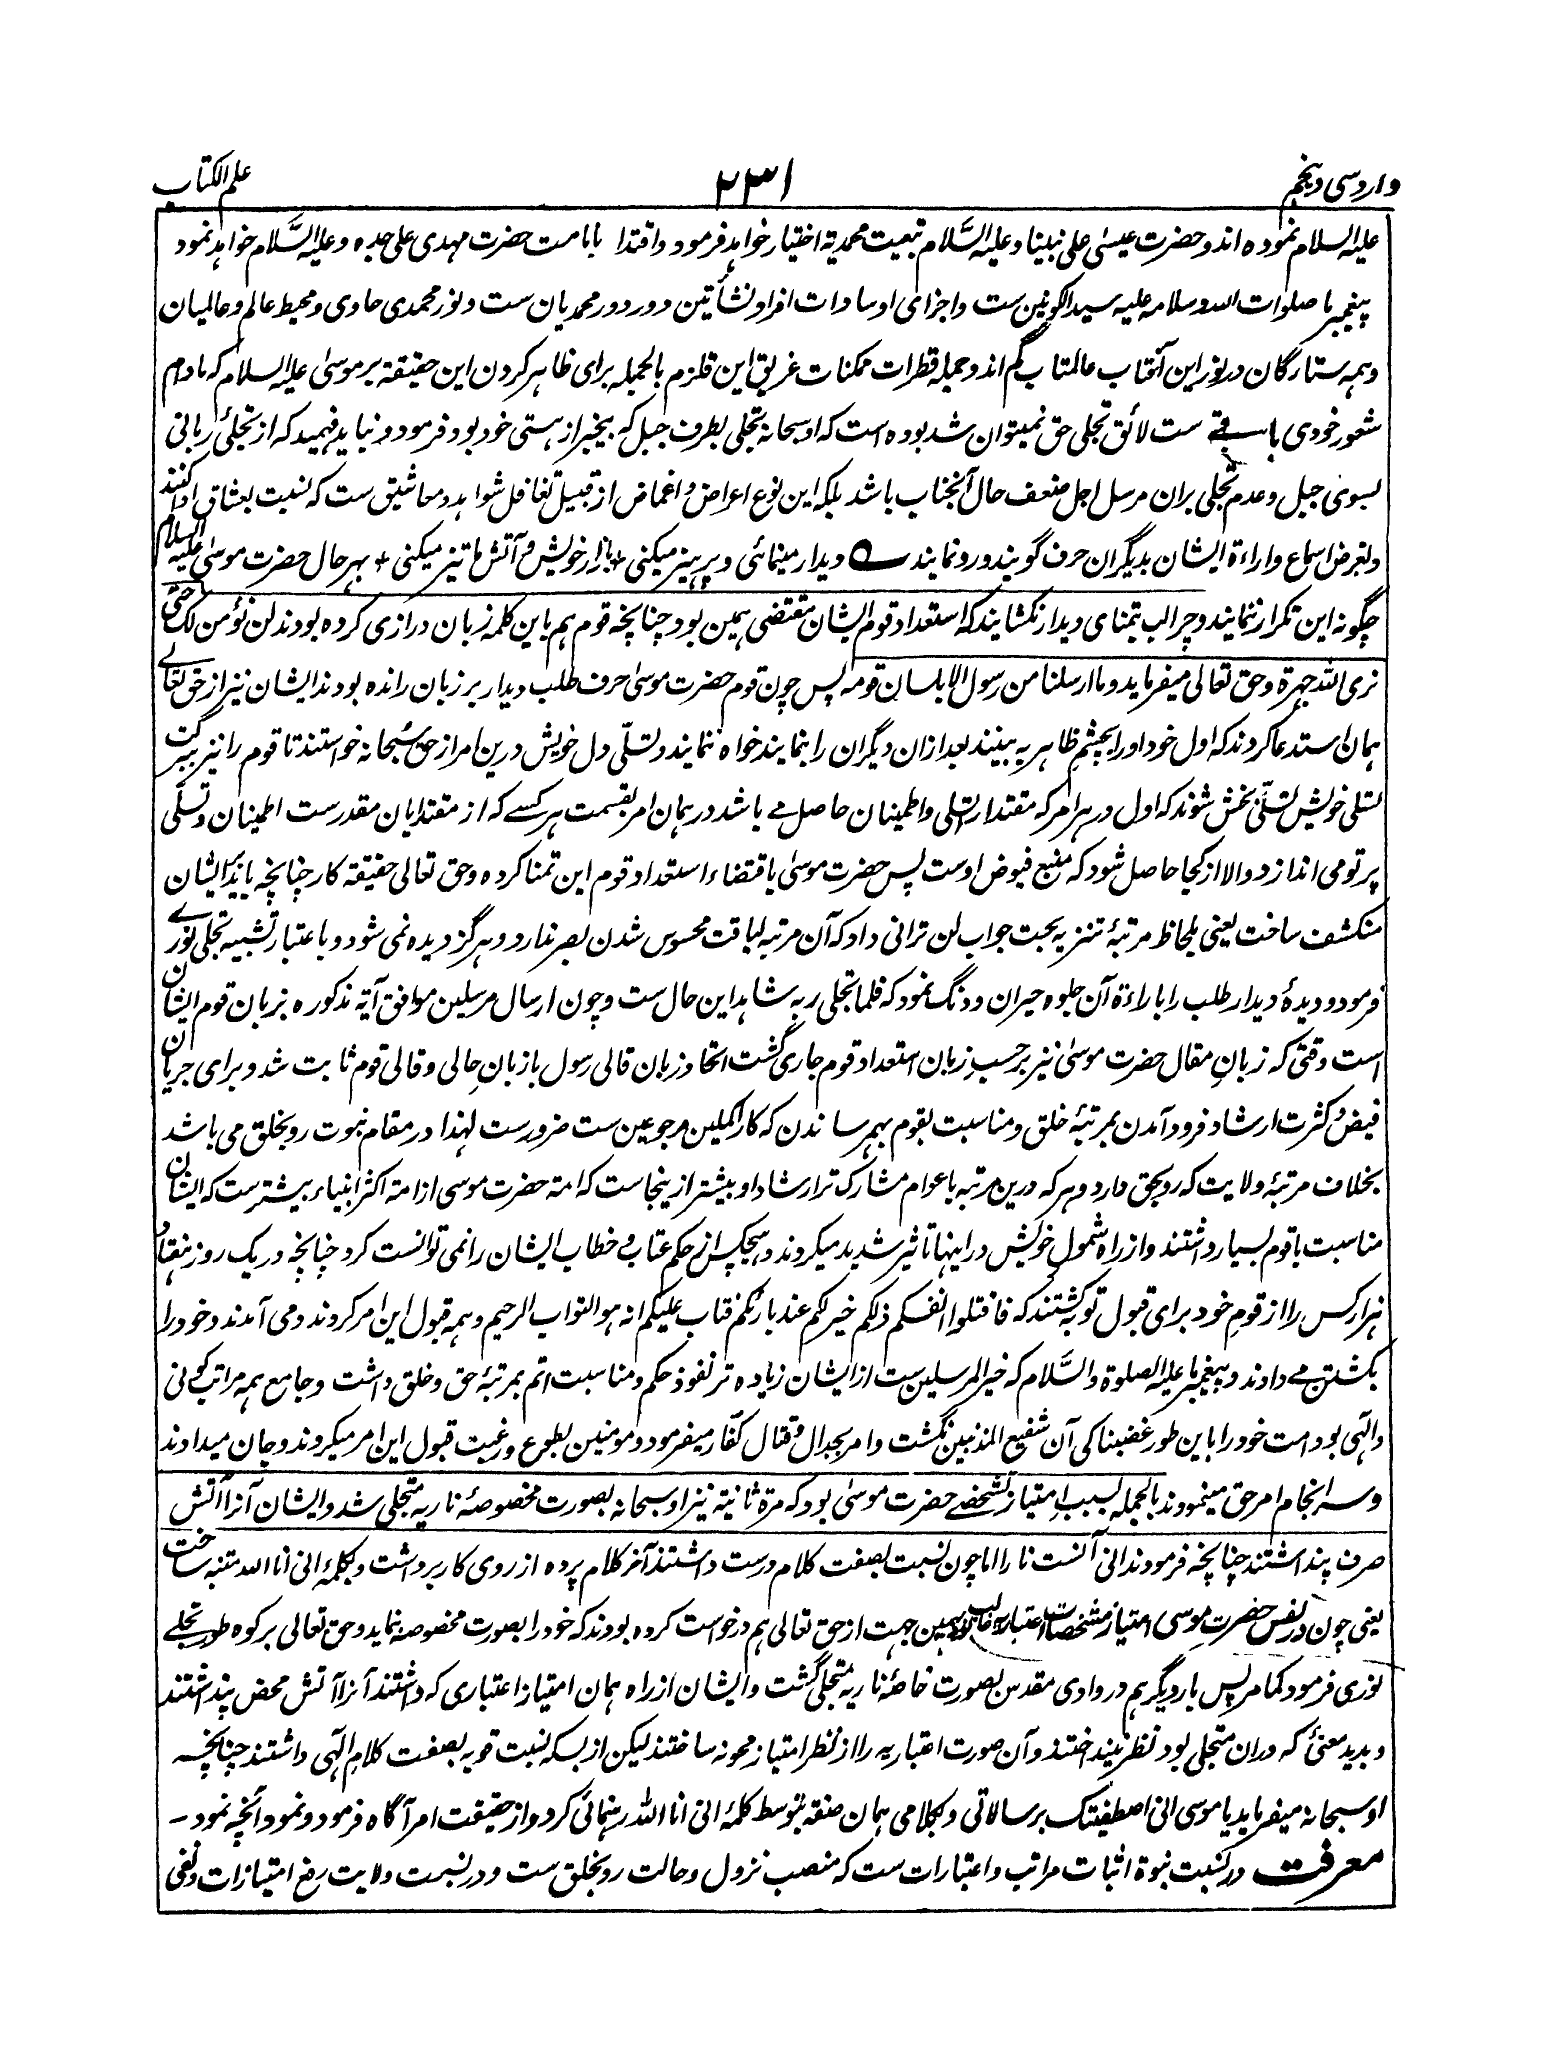 وارد سی و پنجم
۲۳۱
علم الکتاب
علیه السلام نموده اند و حضرت عیسیٰ علی نبینا و علیه السَّلام تبعیت محمدیة اختیار خواهد فرمود و اقتدا بامامت حضرت مهدی علی جده و علیه السَّلام خواهد نمود
پیغمبر ما صلوات الله و سلامه علیه سید الکونین ست و اجزای او سادات افراد نشأتین دور دور محمدیان ست و نور محمدی حاوی و محیط عالم و عالمیان
و همه ستارگان در نور این آفتاب عالمتاب گم اند و جمله قطرات ممکنات غریق این قلزم بالجمله برای ظاهر کردن این حقیقة بر موسیٰ علیه السلام که مادام
شعور خودی باقے ست لائق تجلی حق نمیتوان شد بوده است که او سبحانه تجلی بطرف جبل که بیخبر از هستی خود بود فرمود و نباید فهمید که از تجلیٔ ربانی
بسوی جبل و عدم تجلی بران مرسل اجل ضعف حال آنجناب باشد بلکه این نوع اعراض و اغماض از قبیل تغافل شواهد و معاشیق ست که نسبت بعشاق ادا کنند
و بغرض اسماع و اراءة ایشان بدیگران حرف گویند و رو نمایند ؎ دیدار مینمائی و پرهیز میکنی + بازار خویش و آتش ما تیز میکنی + بهر حال حضرت موسیٰ علیه السلام
چگونه این تکرار ننمایند و چرا لب بتمنای دیدار نکشایند که استعداد قوم ایشان مقتضی همین بود چنانچه قوم هم باین کلمه زبان درازی کرده بودند لن نؤمن لک حتّی
نری الله جهرة و حق تعالی میفرماید و ما ارسلنا من رسول الا بلسان قومه پس چون قوم حضرت موسیٰ حرف طلب دیدار بر زبان رانده بودند ایشان نیز از حق تعالے
همان استدعا کردند که اول خود او را بچشم ظاهر به بینند بعد ازان دیگران را بنمایند خواه ننمایند و تسلّی دل خویش درین امر از حق سُبحانه خواستند تا قوم را نیز ببرکت
تسلی خویش تسلّی بخش شوند که اول در هر امر که مقتدا را تسلی و اطمینان حاصل مے باشد در همان امر بقسمت هر کسے که از مقتدایان مقدرست اطمینان و تسلّی
پرتو می اندازد و الا از کجا حاصل شود که منبع فیوض اوست پس حضرت موسیٰ باقتضاء استعداد قوم این تمنا کرده و حق تعالی حقیقة کار چنانچه باید بر ایشان
منکشف ساخت یعنی بلحاظ مرتبهٔ تنزیه بحت جواب لن ترانی داد که آن مرتبه لیاقت محسوس شدن بصر ندارد و هرگز دیده نمی شود و باعتبار تشبیه تجلی نورے
فرمود و دیدهٔ دیدار طلب را باراءة آن جلوه حیران و دنگ نمود که فلما تجلی ربه شاهد این حال ست و چون ارسال مرسلین موافق آیة مذکوره بزبان قوم ایشان
است وقتی که زبانِ مقال حضرت موسیٰ نیز بر حسبِ زبان استعداد قوم جاری گشت اتحاد زبان قالی رسول با زبانِ حالی و قالی قوم ثابت شد و برای جریان
فیض و کثرت ارشاد فرود آمدن بمرتبهٔ خلق و مناسبت بقوم بهم رساندن که کار اکملین مرجوعین ست ضرورست لهذا در مقام نبوت رو بخلق می باشد
بخلاف مرتبهٔ ولایت که رو بحق دارد و هر که درین مرتبه با عوام مشارک تر ارشاد او بیشتر ازینجاست که امة حضرت موسی از امة اکثر انبیاء بیشترست که ایشان
مناسبت با قوم بسیار داشتند و از راه شمول خویش در اینها تاثیر شدید میکردند و هیچکس از حکم عتاب و خطاب ایشان را نمی توانست کرد چنانچه در یک روز هفتاد
هزار کس را از قومِ خود برای قبول توبه کشتند که فاقتلوا انفسکم ذلکم خیر لکم عند بارئکم فتاب علیکم انه هو التواب الرحیم و همه قبول این امر کردند و می آمدند و خود را
بکشتن مے دادند و پیغمبر ما علیه الصلوة والسَّلام که خیر المرسلین ست از ایشان زیاده تر نفوذ حکم و مناسبت اتم بمرتبهٔ حق و خلق داشت و جامع همه مراتب کونی
و الٰهی بود امت خود را باین طور غضبناکی آن شفیع المذنبین نگشت و امر بجدال و قتال کفار میفرمود و مومنین بطوع و رغبت قبول این امر میکردند و جان میدادند
و سرانجام امر حق مینمودند بالجمله بسبب امتیاز تشخصے حضرت موسیٰ بود که مرة ثانیة نیز او سبحانه بصورت مخصوصهٔ ناریه متجلی شد و ایشان آنرا آتش
صرف پنداشتند چنانچه فرمودند انی آنست نارا اما چون نسبت بصفت کلام درست داشتند آخر کلام پرده از روی کار برداشت و بکلمهٔ انی انا الله متنبه ساخت
یعنی چون در نفس حضرت موسی امتیاز مشخصات اعتباریه غالب بود بهمین جهت از حق تعالی هم درخواست کرده بودند که خود را بصورت مخصوصه نماید و حق تعالی بر کوه طور تجلے
نوری فرمود کما مر پس بار دیگر هم در وادی مقدس بصورت خاصهٔ ناریه متجلی گشت و ایشان از راه همان امتیاز اعتباری که داشتند آنرا آتش محض پنداشتند
و بدید معنیٰ که دران متجلی بود نظر نینداختند و آن صورت اعتباریه را از نظر امتیاز محو نه ساختند لیکن از بسکه نسبت قویه بصفت کلامِ الٰهی داشتند چنانچه
او سبحانه میفرماید یا موسی انی اصطفیتک برسالاتی و بکلامی همان صفة بتوسط کلمهٔ انی انا الله رهنمائی کرد و از حقیقت امر آگاه فرمود و نمود آنچه نمود -
معرفت در نسبت نبوة اثبات مراتب و اعتبارات ست که منصب نزول و حالت رو بخلق ست و در نسبت ولایت رفع امتیازات و نفی